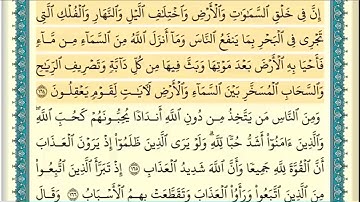 إِنَّ فِى خَلْقِ ٱلسَّمَـٰوَٰتِ وَٱلْأَرْضِ وَٱخْتِلَـٰفِ ٱلَّيْلِ وَٱلنَّهَارِ وَٱلْفُلْكِ ٱلَّتِى
تَجْرِى فِى ٱلْبَحْرِ بِمَا يَنفَعُ ٱلنَّاسَ وَمَآ أَنزَلَ ٱللَّهُ مِنَ ٱلسَّمَآءِ مِن مَّآءٍ
فَأَحْيَا بِهِ ٱلْأَرْضَ بَعْدَ مَوْتِهَا وَبَثَّ فِيهَا مِن كُلِّ دَآبَّةٍ وَتَصْرِيفِ ٱلرِّيَـٰحِ
وَٱلسَّحَابِ ٱلْمُسَخَّرِ بَيْنَ ٱلسَّمَآءِ وَٱلْأَرْضِ لَـَٔايَـٰتٍ لِّقَوْمٍ يَعْقِلُونَ ١٦٤
وَمِنَ ٱلنَّاسِ مَن يَتَّخِذُ مِن دُونِ ٱللَّهِ أَندَادًا يُحِبُّونَهُمْ كَحُبِّ ٱللَّهِ ۖ
وَٱلَّذِينَ ءَامَنُوٓا۟ أَشَدُّ حُبًّا لِّلَّهِ ۗ وَلَوْ يَرَى ٱلَّذِينَ ظَلَمُوٓا۟ إِذْ يَرَوْنَ ٱلْعَذَابَ
أَنَّ ٱلْقُوَّةَ لِلَّهِ جَمِيعًا وَأَنَّ ٱللَّهَ شَدِيدُ ٱلْعَذَابِ ١٦٥ إِذْ تَبَرَّأَ ٱلَّذِينَ ٱتُّبِعُوا۟
مِنَ ٱلَّذِينَ ٱتَّبَعُوا۟ وَرَأَوُا۟ ٱلْعَذَابَ وَتَقَطَّعَتْ بِهِمُ ٱلْأَسْبَابُ ١٦٦ وَقَالَ